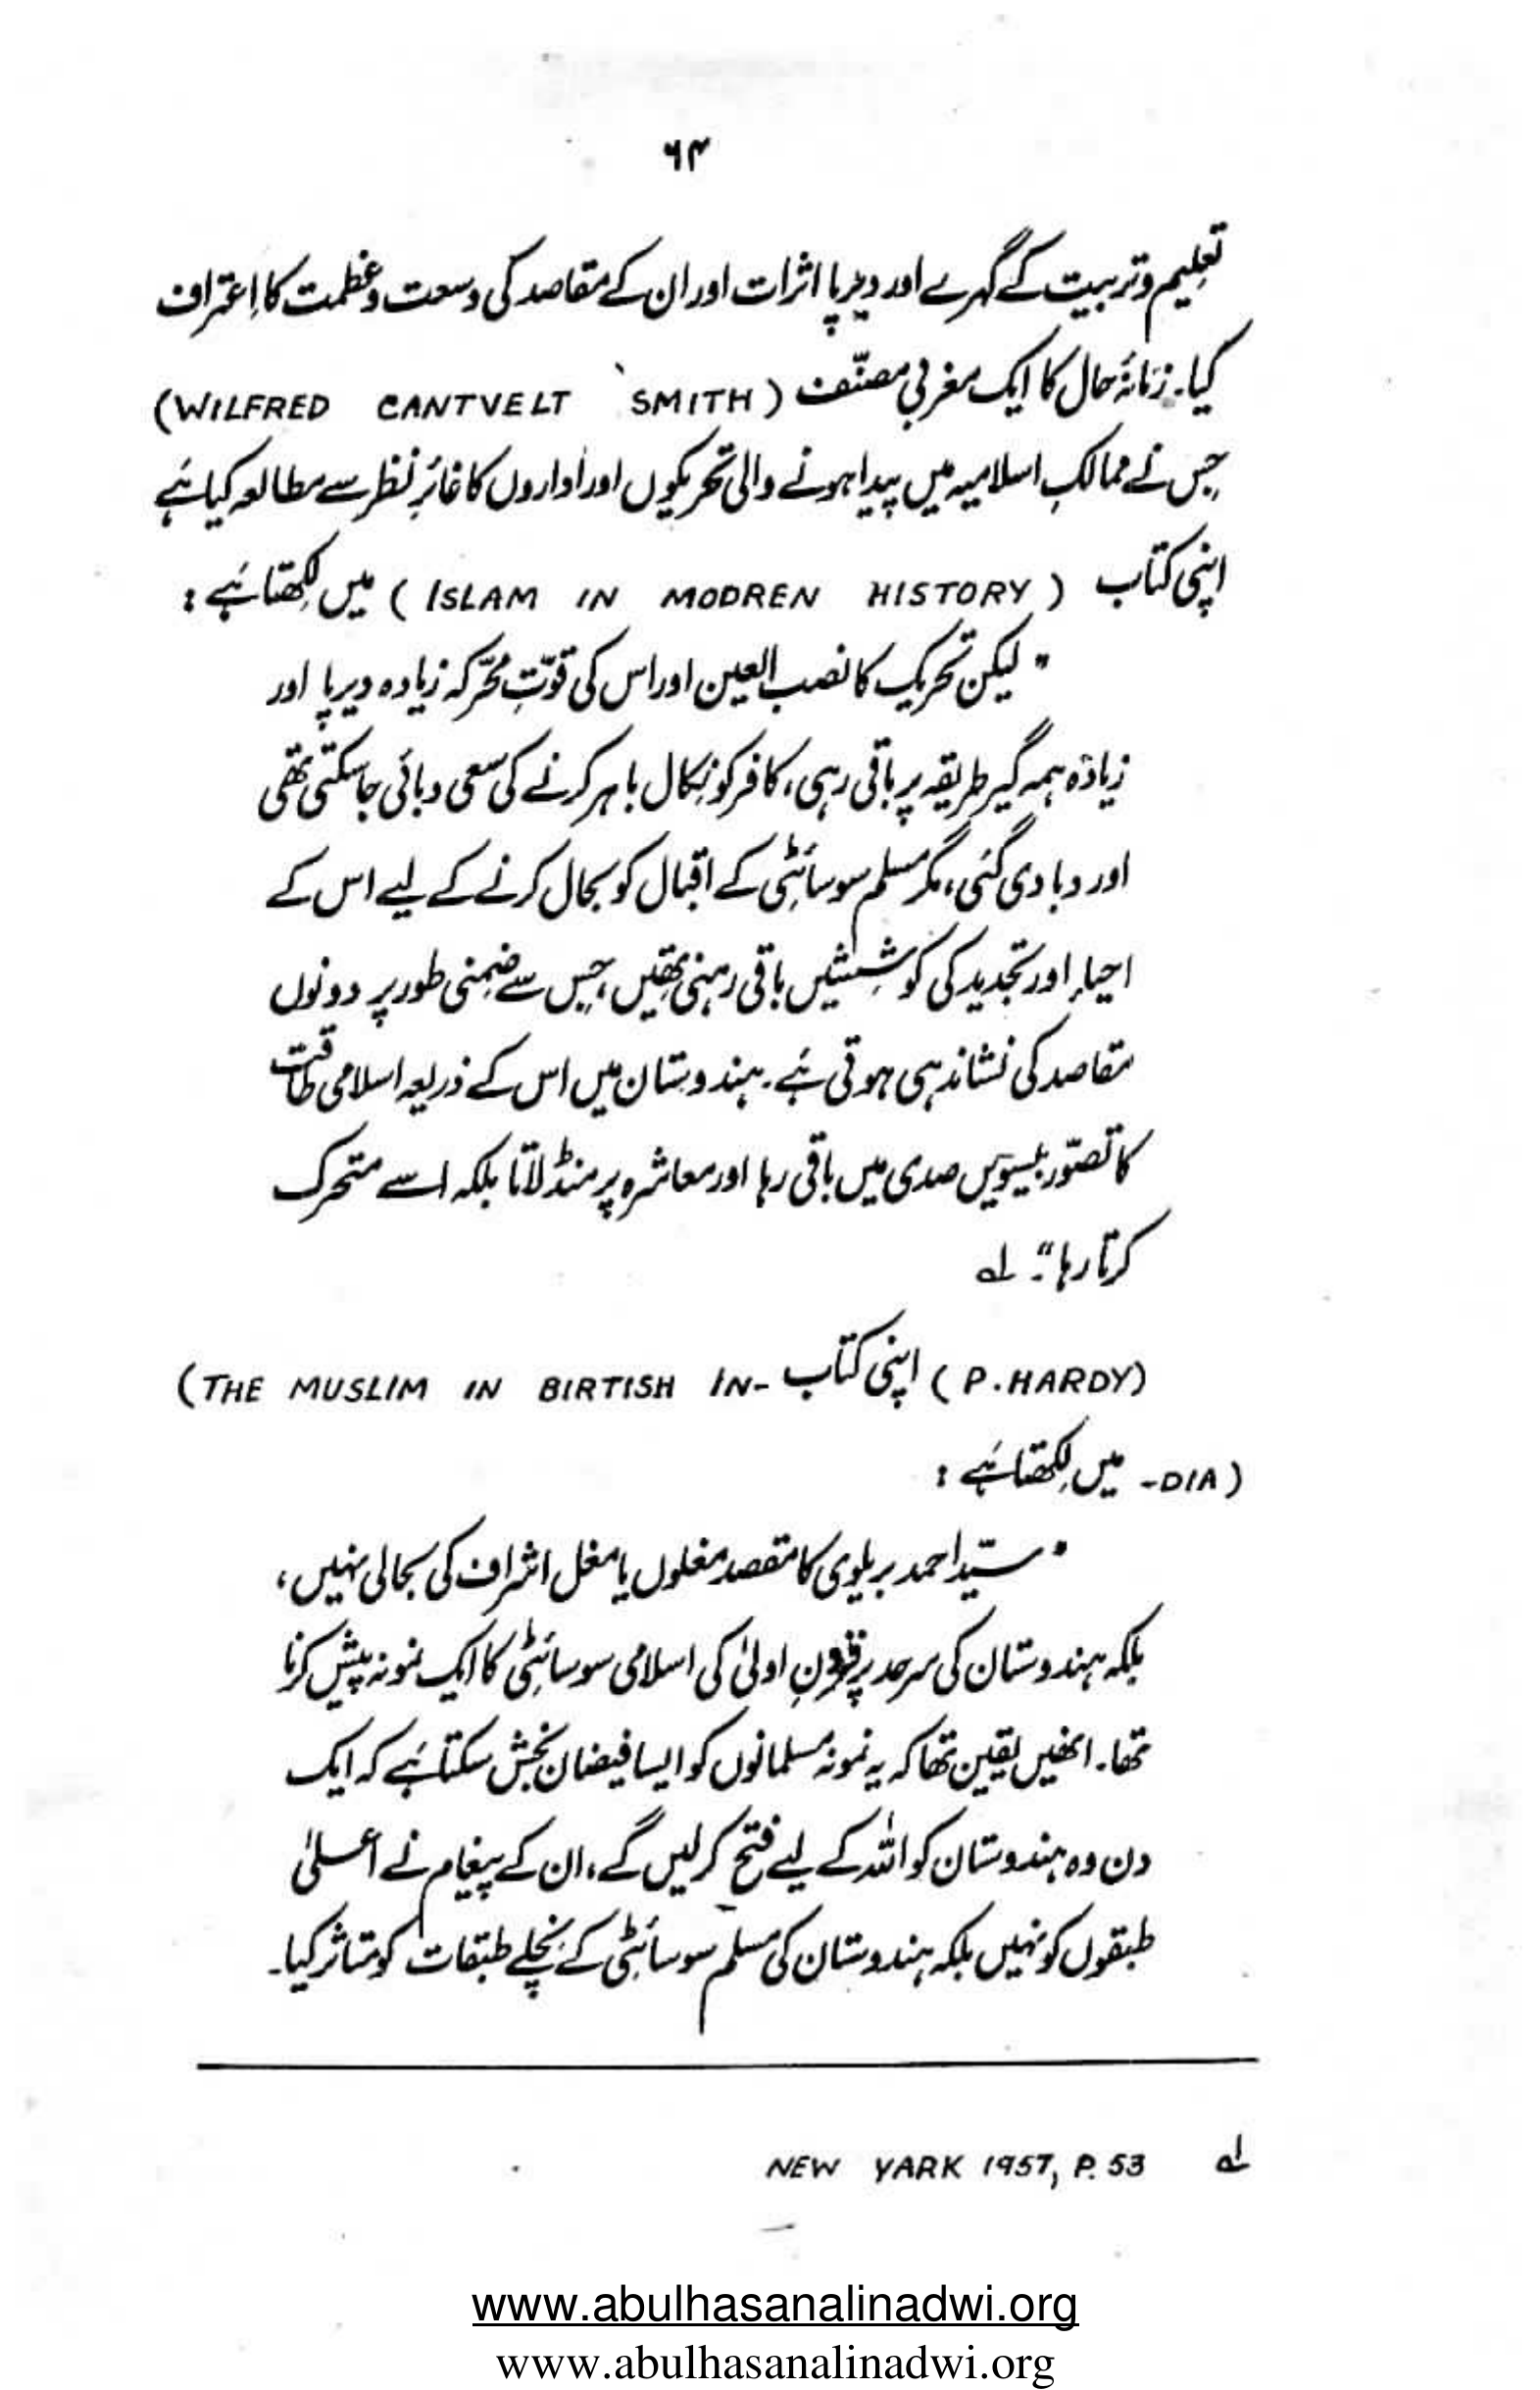 ۶۴
تعلیم و تربیت کے گہرے اور دیرپا اثرات اور ان کے مقاصد کی وسعت و عظمت کا اعتراف
کیا۔ زمانۂ حال کا ایک مغربی مصنّف (WILFRED CANTVELT SMITH)
جس نے ممالکِ اسلامیہ میں پیدا ہونے والی تحریکوں اور اداروں کا غائر نظر سے مطالعہ کیا ہے
اپنی کتاب (ISLAM IN MODREN HISTORY) میں لکھتا ہے :
"لیکن تحریک کا نصب العین اور اس کی قوّتِ محرّکہ زیادہ دیرپا اور
زیادہ ہمہ گیر طریقہ پر باقی رہی، کافر کو نکال باہر کرنے کی سعی دبائی جا سکتی تھی
اور دبا دی گئی، مگر مسلم سوسائٹی کے اقبال کو بحال کرنے کے لیے اس کے
احیاء اور تجدید کی کوششیں باقی رہنی تھیں، جس سے ضمنی طور پر دونوں
مقاصد کی نشاندہی ہوتی ہے۔ ہندوستان میں اس کے ذریعہ اسلامی طاقت
کا تصوّر بیسویں صدی میں باقی رہا اور معاشرہ پر منڈلاتا بلکہ اسے متحرک
کرتا رہا"۔ لہ
(P. HARDY) اپنی کتاب (THE MUSLIM IN BIRTISH IN-
-DIA) میں لکھتا ہے :
"سیّد احمد بریلوی کا مقصد مغلوں یا مغل اشراف کی بحالی نہیں،
بلکہ ہندوستان کی سرحد پر قرونِ اولیٰ کی اسلامی سوسائٹی کا ایک نمونہ پیش کرنا
تھا۔ انھیں یقین تھا کہ یہ نمونہ مسلمانوں کو ایسا فیضان بخش سکتا ہے کہ ایک
دن وہ ہندوستان کو اللہ کے لیے فتح کرلیں گے، ان کے پیغام نے اعلیٰ
طبقوں کو نہیں بلکہ ہندوستان کی مسلم سوسائٹی کے نچلے طبقات کو متاثر کیا۔
لہ NEW YARK 1957, P. 53
www.abulhasanalinadwi.org
www.abulhasanalinadwi.org